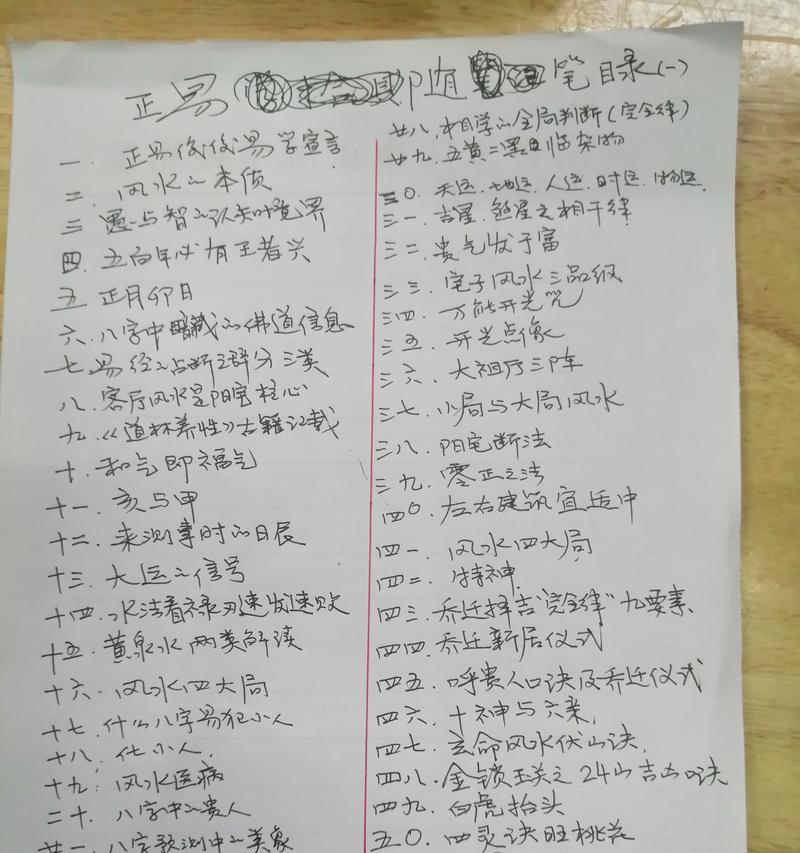 正易随笔目录(一)
一. 正易侄侄易学宣言
二. 风水的本质
三 愚与智的认知境界
四. 五百年必有王者兴
五. 正月卯日
六. 八字中暗藏的佛道信息
七. 易经的占断之辞分三类
八. 客厅风水是阳宅核心
九.《道林养性》古籍记载
十. 和气即福气
十一. 亥与甲
十二. 来测事时的日辰
十三. 大运的信号
十四. 水法看禄刃速发速败
十五. 黄泉水两类解读
十六. 风水四大局
十七. 什么八字易犯小人
十八. 化小人.
十九. 风水医病
二十. 八字中的贵人
廿一. 八字预测中的类象
廿八. 相学的全局判断(完全律)
廿九. 五黄二黑忌临杂物
三0. 天运. 地运. 人运. 时运. 物运.
三一. 吉星. 煞星之相干律
三二. 贵气发于富
三三. 宅子风水三品级
三四. 万能开光咒
三五. 开光点像
三六. 大祖厅三阵
三七. 小局与大局风水
三八. 阳宅断法
三九. 零正之法
四0. 左右建筑宜适中
四一. 风水四大局
四二. 特神.
四三. 乔迁择吉"完全律"九要素
四四. 乔迁新居仪式
四五. 呼贵人口诀及乔迁仪式
四六. 十神与六亲.
四七. 玄命风水伏山诀.
四八. 金锁玉关之24山吉凶口诀
四九. 白虎抬头
五0. 四灵诀旺桃花